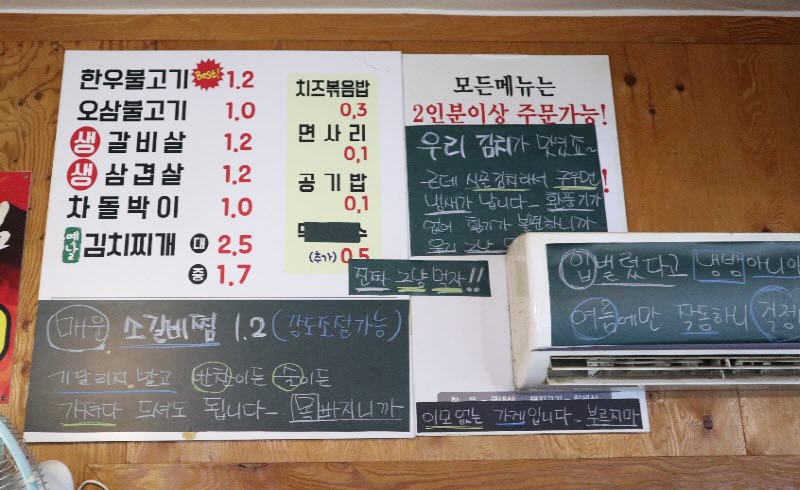 한우불고기 Best! 1.2
오삼불고기 1.0
생 갈비살 1.2
생 삼겹살 1.2
차돌박이 1.0
옛날 김치찌개 대 2.5
중 1.7
치즈볶음밥
0,3
면사리
0,1
공기밥
0,1
(추가) 0,5
모든메뉴는
2인분이상 주문가능!
우리 김치가 맛있죠~
근데 시골김치라서 구우면
냄새가 납니다~ 환풍기가
없어 환기가 불편하니까
우리 그냥
진짜 그냥 먹자!!
매운 소갈비찜 1.2 (강도조절가능)
기달리지 말고 반찬이든 술이든
가져다 드셔도 됩니다~ 목빠지니까
입 벌렸다고 냉방 아니야
여름에만 작동하니 걱정
이모 없는 가게입니다~ 부르지마